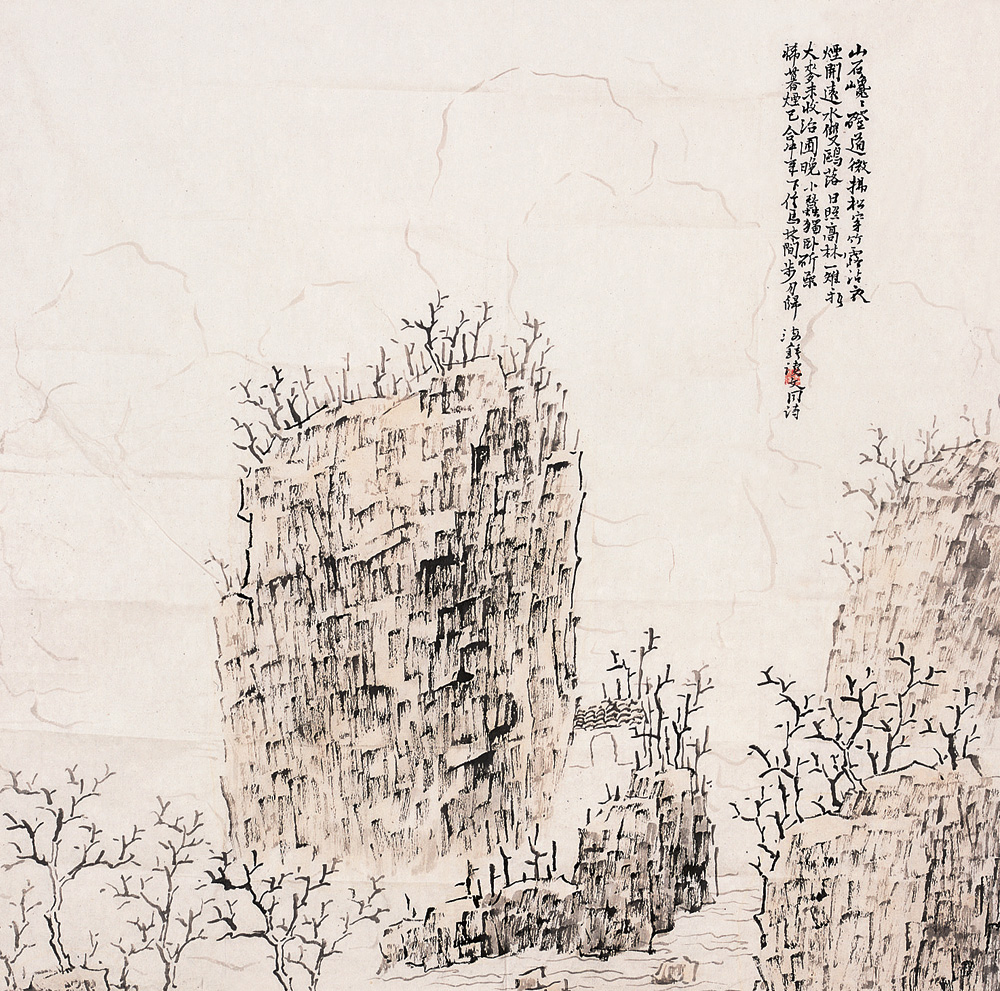 山石巉巉磴道微拂松穿竹露沾衣
煙開遠水雙鷗落日照高林一雉飛
大麥未收治圃晚小蠶猶臥斫桑
稀暮煙已合牛羊下信馬林間步月歸 海鐘讀文同詩